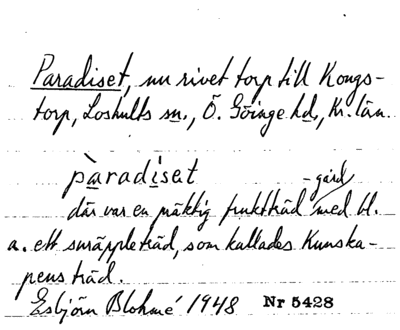 Paradiset, nu rivet torp till Kongs-
torp, Loshults sn., Ö. Göinge hd., Kr. län.
pàradiset
där var en präktig fruktträdgård med bl.
a. ett suräppleträd, som kallades Kunska-
pens träd.
Esbjörn Blohmé 1948 Nr 5428